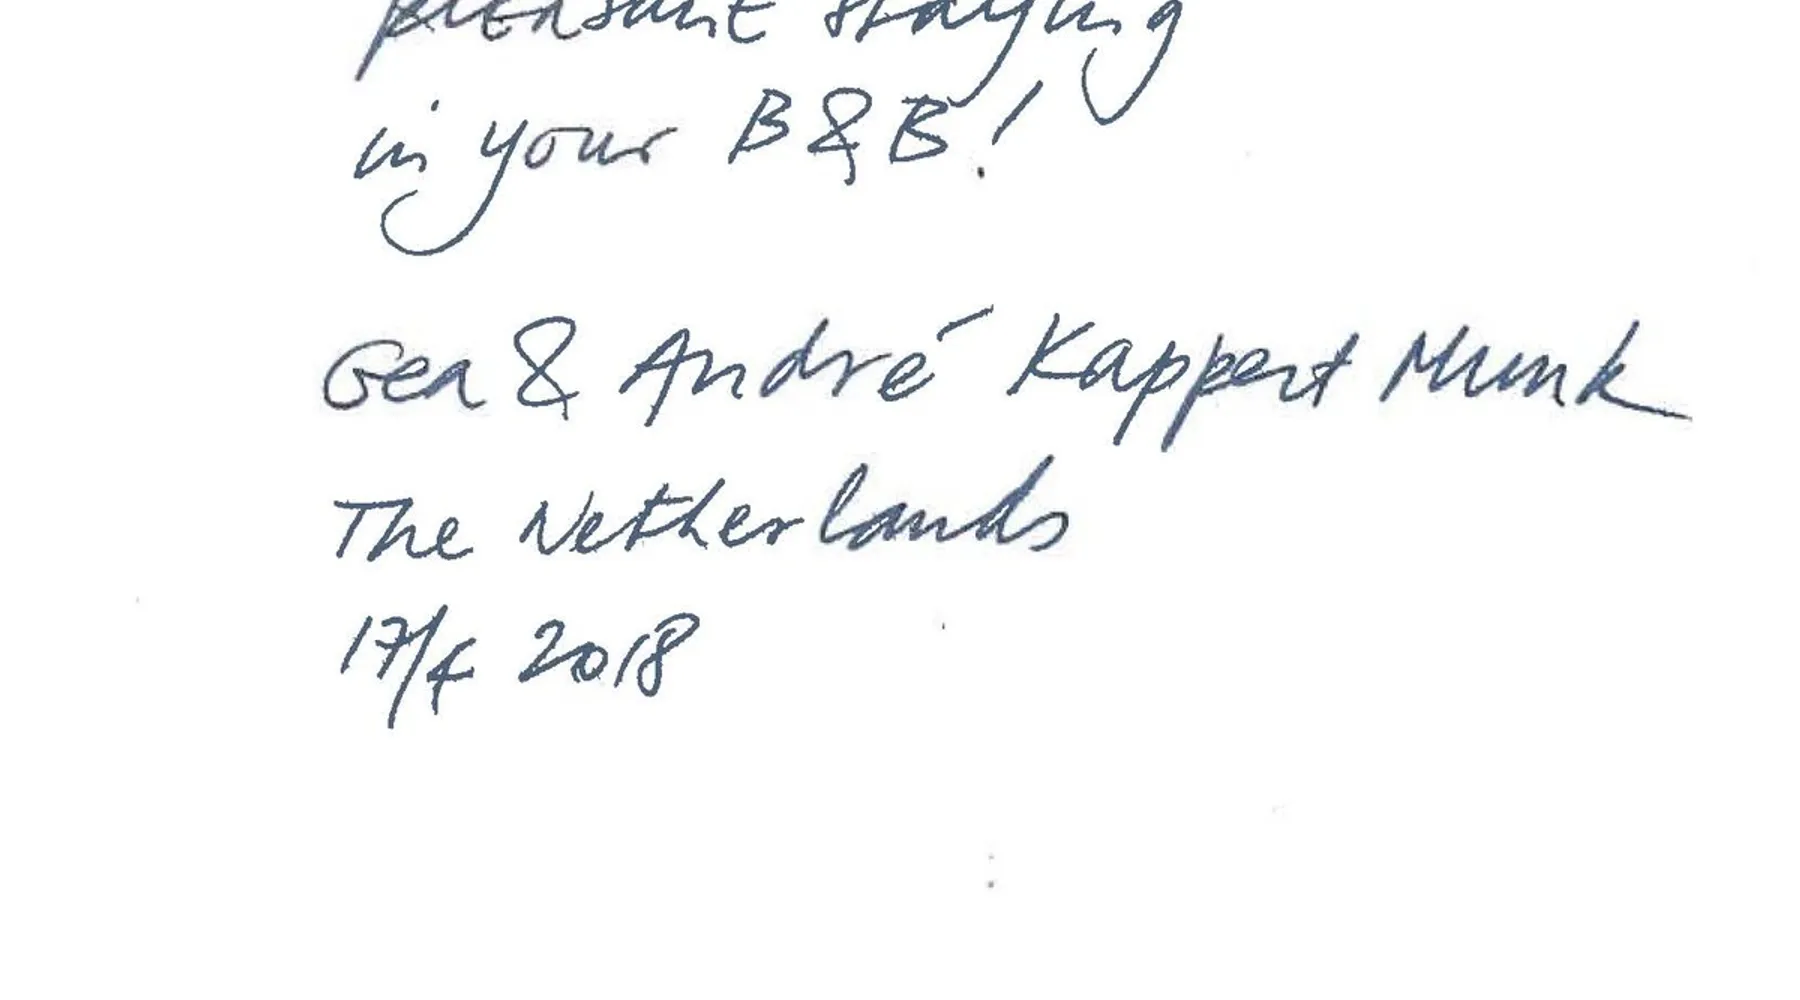 pleasant staying
in your B&B!
Gea & André Kappert Munk
The Netherlands
17/4 2018